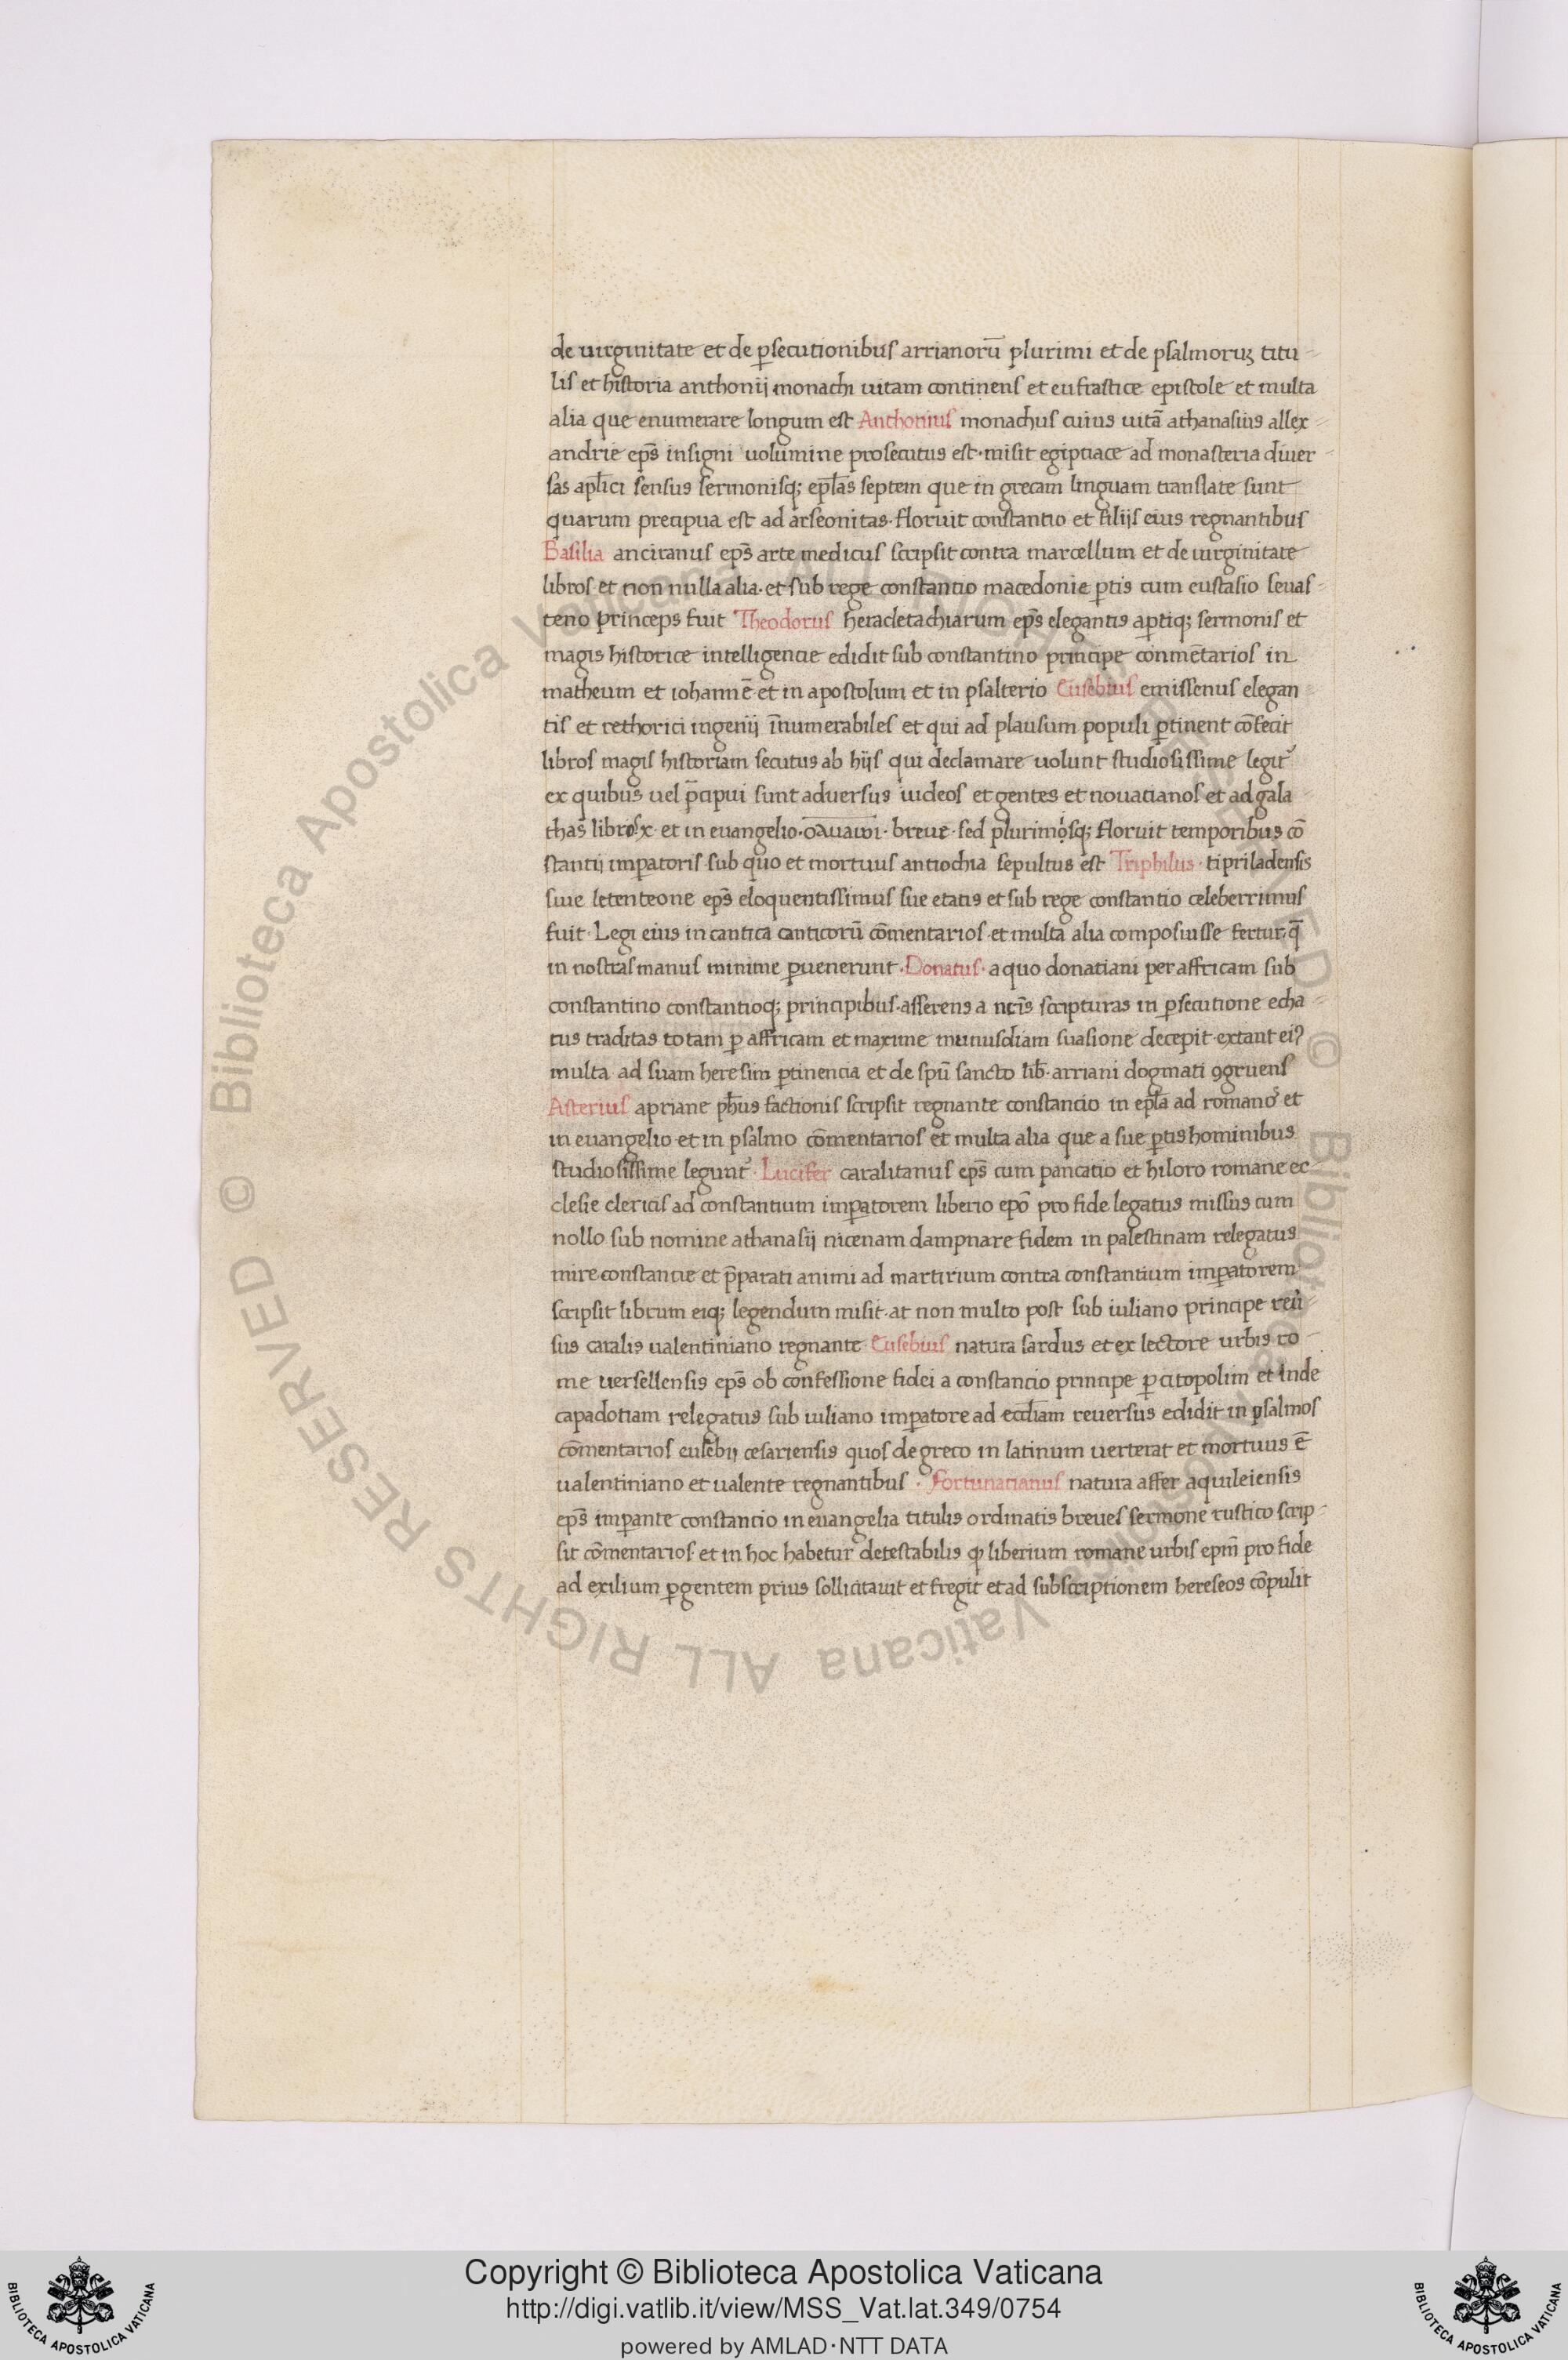 de uirginitate et de ꝑsecutionibus arrianorū plurimi et de psalmoruꝫ titu-
lis et historia anthonij monachi uitam continens et eufrastice epistole et multa
alia que enumerare longum est Anthonius monachus cuius uitā athanasius allex-
andrie ep̄s insigni uolumine prosecutus est · misit egiptiace ad monasteria diuer-
sas apl̄ici sensus sermonisq; epl̄as septem que in grecam linguam translate sunt
quarum precipua est ad arseonitas · floruit constantio et filijs eius regnantibus
Basilia anciranus ep̄s arte medicus scripsit contra marcellum et de uirginitate
libros et non nulla alia · et sub rege constantio macedonie ꝑtis cum eustasio seuas-
teno princeps fuit Theodorus heracletachiarum ep̄s elegantis aꝑtiq; sermonis et
magis historice intelligencie edidit sub constantino principe conmētarios in
matheum et iohannē et in apostolum et in psalterio Eusebius emissenus elegan
tis et rethorici ingenij īnumerabiles et qui ad plausum populi ꝑtinent cōfecit
libros magis historiam secutus ab hijs qui declamare uolunt studiosissime legit᷑
ex quibus uel p̄cipui sunt aduersus iudeos et gentes et nouatianos et ad gala
thas libros x · et in euangelio · oavawi · breue · sed plurimosq; floruit temporibus cō
stantij imꝑatoris sub quo et mortuus antiochia sepultus est Triphilus · tipriladensis
siue letenteone ep̄s eloquentissimus sue etatis et sub rege constantio celeberrimus
fuit · Legi eius in cantica canticorū cōmentarios et multa alia composuisse fertur q̄
in nostras manus minime ꝑuenerunt · Donatus · a quo donatiani per affricam sub
constantino constantioq; principibus · asserens a nr̄is scripturas in ꝑsecutione echa-
tus traditas totam ꝑ affricam et maxime munusdiam suasione decepit · extant eiꝰ
multa ad suam heresim ꝑtinencia et de spū sancto lib̄ · arriani dogmati ꝯgruens
Asterius apriane ph̄us factionis scripsit regnante constancio in epl̄a ad romano᷒ et
in euangelio et in psalmo cōmentarios et multa alia que a sue ꝑtis hominibus
studiosissime legunt᷑ · Lucifer caralitanus ep̄s cum pancatio et hiloro romane ec
clesie clericis ad constantium imꝑatorem liberio epō pro fide legatus missus cum
nollo sub nomine athanasij nicenam dampnare fidem in palestinam relegatus
mire constancie et p̄parati animi ad martirium contra constantium imꝑatorem
scripsit librum eiq; legendum misit · at non multo post sub iuliano principe reū-
sus caralis ualentiniano regnante Eusebius natura sardus et ex lectore urbis ro-
me uersellensis ep̄s ob confessione fidei a constancio principe ꝑ citopolim et inde
capadotiam relegatus sub iuliano imꝑatore ad eccl̄iam reuersus edidit in psalmos
cōmentarios eusebij cesariensis quos de greco in latinum uerterat et mortuus ē
ualentiniano et ualente regnantibus · Fortunatianus natura affer aquileiensis
ep̄s imꝑante constancio in euangelia titulis ordinatis breues sermone rustico scrip-
sit cōmentarios · et in hoc habetur detestabilis ꝙ liberium romane urbis epm̄ pro fide
ad exilium ꝑgentem prius sollicitauit et fregit et ad subscriptionem hereseos cōpulit
© Biblioteca Apostolica Vaticana ALL RIGHTS RESERVED
© Biblioteca Apostolica Vaticana ALL RIGHTS RESERVED
BIBLIOTECA APOSTOLICA VATICANA
Copyright © Biblioteca Apostolica Vaticana
http://digi.vatlib.it/view/MSS_Vat.lat.349/0754
powered by AMLAD·NTT DATA
BIBLIOTECA APOSTOLICA VATICANA